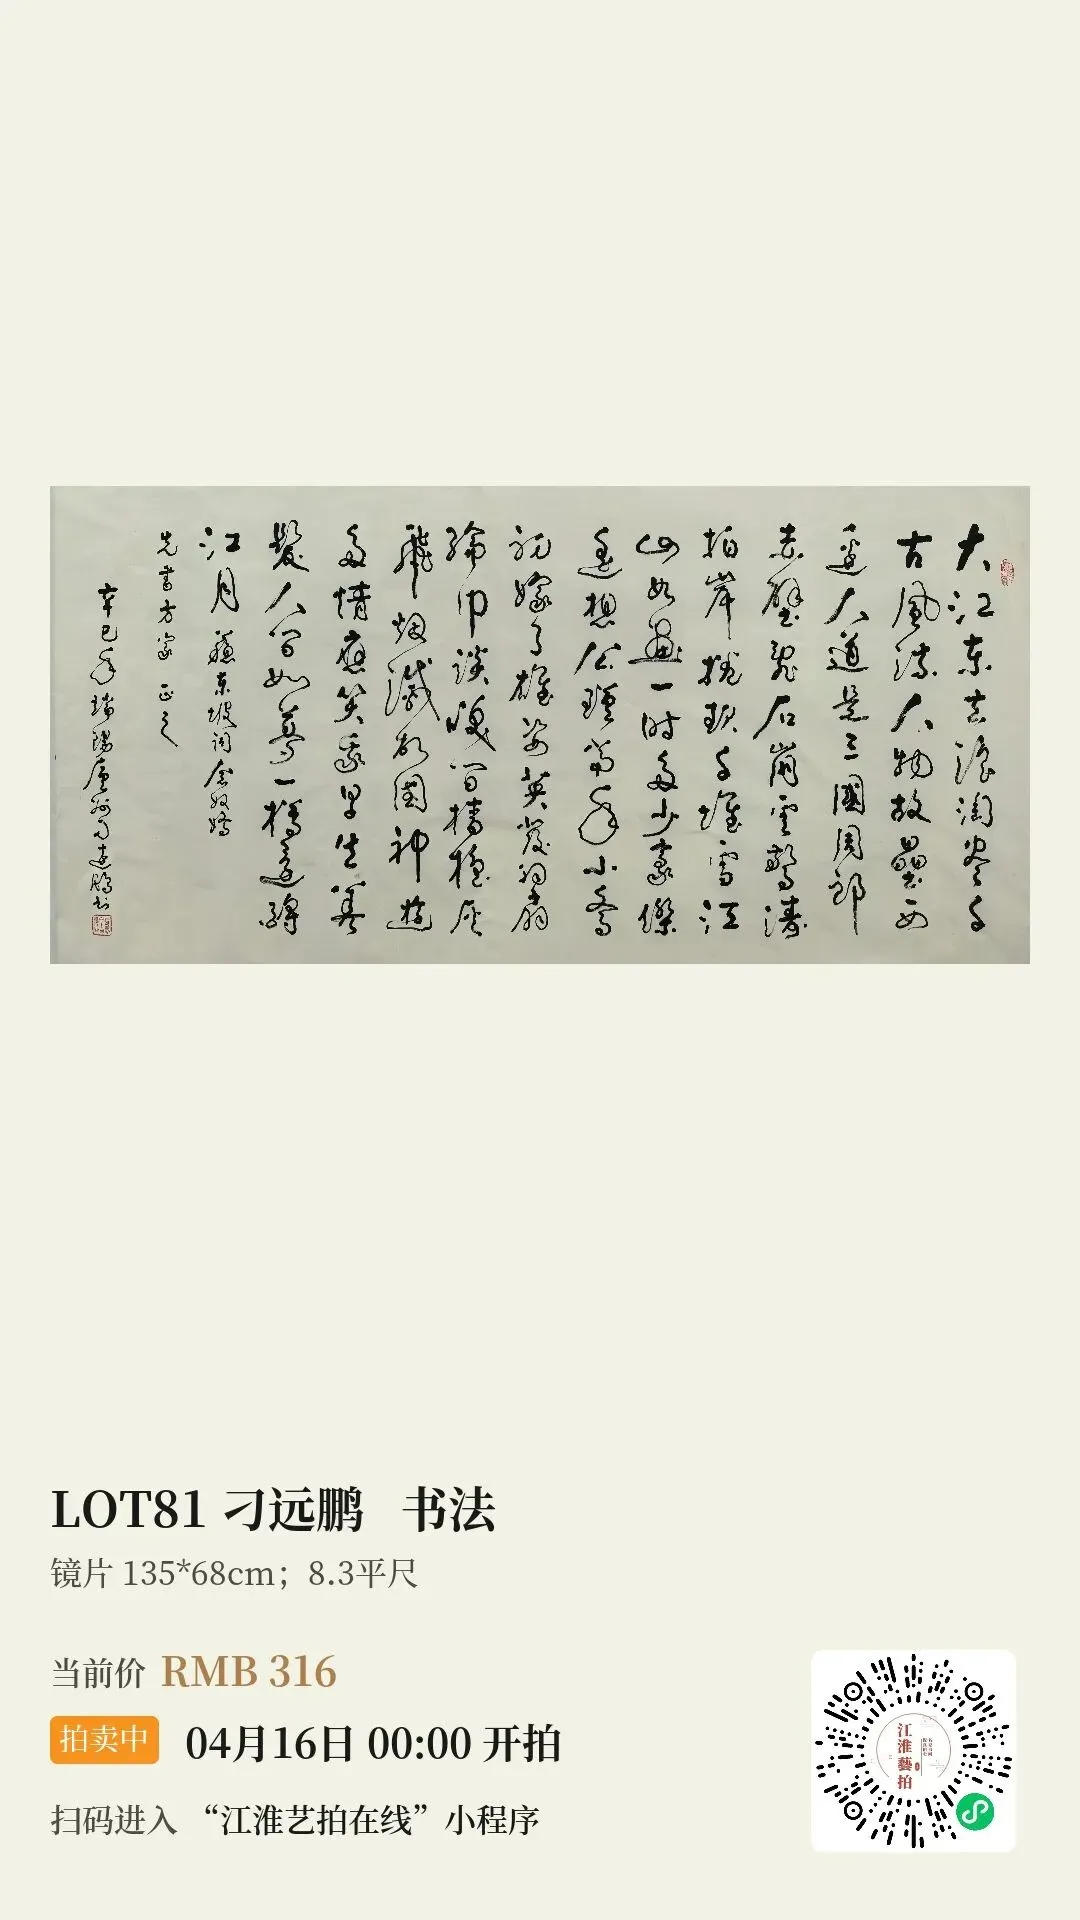 大江东去浪淘尽千
古风流人物故垒西
边人道是三國周郎
赤壁乱石崩雲驚涛
拍岸捲起千堆雪江
山如画一时多少豪傑
遥想公瑾当年小乔
初嫁了雄姿英发羽扇
纶巾谈笑间樯橹灰
飛烟滅故國神遊
多情應笑我早生华
髮人间如夢一樽还酹
江月 蘇東坡词念奴娇
先書方家正之
辛巳年端陽廬州刁远鹏书
LOT81 刁远鹏 书法
镜片 135*68cm；8.3平尺
当前价 RMB 316
拍卖中 04月16日 00:00 开拍
扫码进入 “江淮艺拍在线”小程序
江淮藝拍